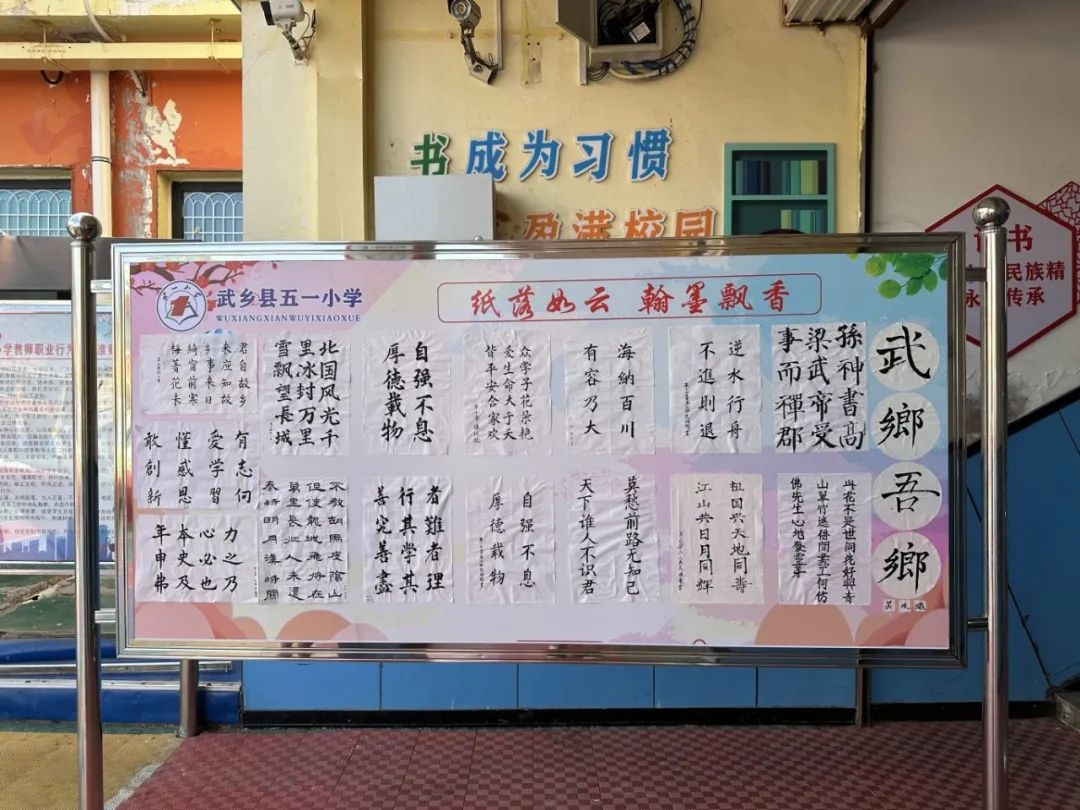 书成为习惯
盈满校园
书
民族精
传承
武乡县五一小学
WUXIANGXIANWUYIXIAOXUE
纸落如云 翰墨飘香
武鄉吾鄉
孫神書高
梁武帝受
事而禪郡
逆水行舟
不進則退
海納百川
有容乃大
众学子花朵艳
爱生命大于天
皆平安合家欢
自强不息
厚德載物
北国风光千
里冰封万里
雪飘望長城
君自故乡
来应知故
乡事来日
綺窗前寒
梅著花未
有志向
爱学習
懂感恩
敢創新
山草竹迳借問
佛先生心地
祖国兴天地同壽
江山共日月同辉
莫愁前路无知己
天下谁人不识君
自强不息
厚德载物
者難者理
行其学其
善完善盡
不教胡馬度陰山
但使龍城飛將在
萬里長征人未還
秦時明月漢時關
力之乃
心必也
本史及
年申弗
学教师职业行为